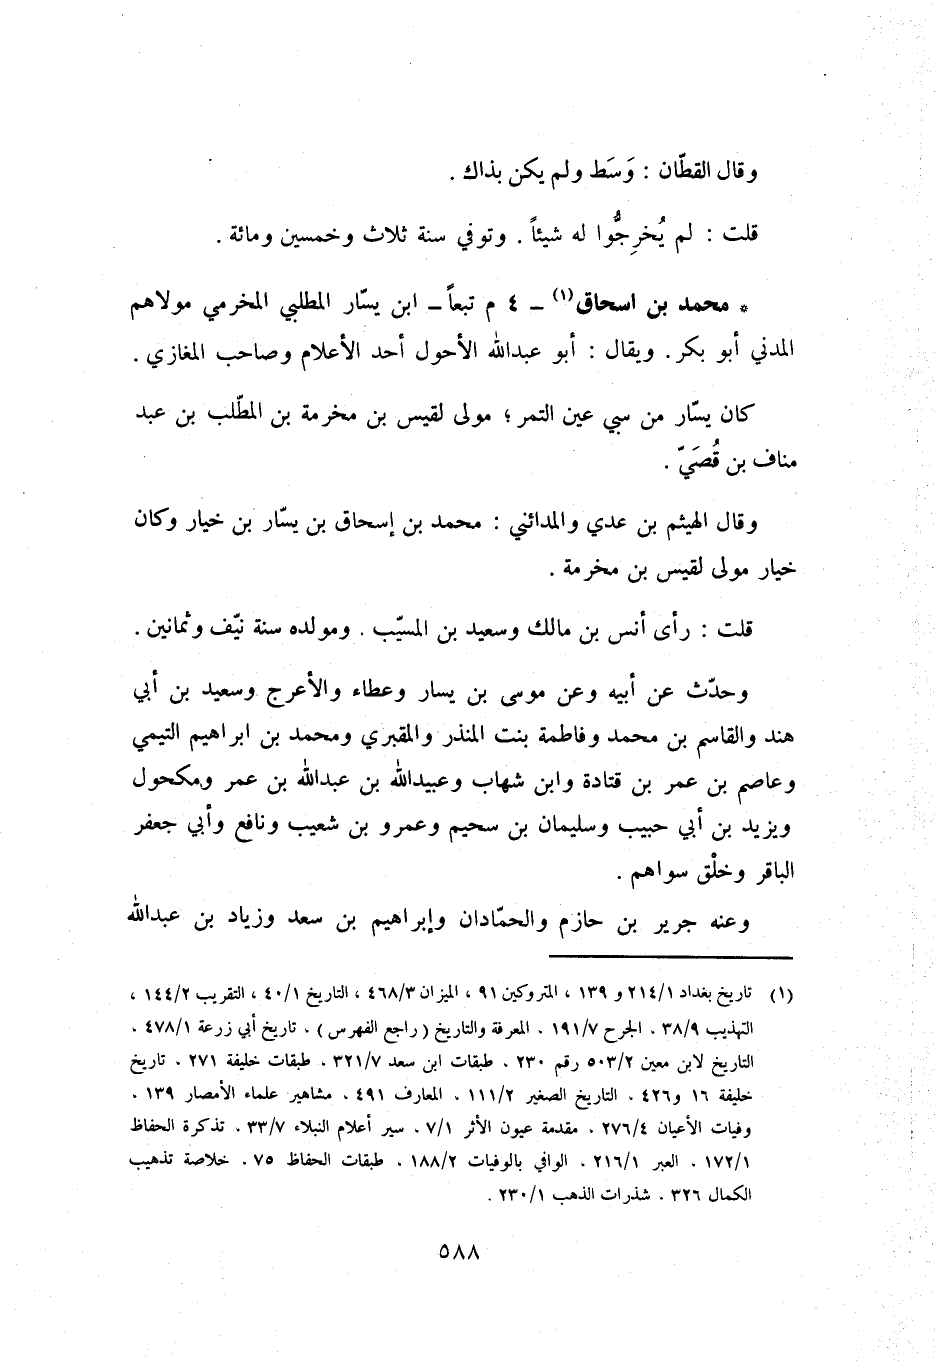 وقال القطّان : وَسَط ولم يكن بذاك .
قلت : لم يُخرِجُّوا له شيئاً . وتوفي سنة ثلاث وخمسين ومائة .
* محمد بن اسحاق(١) ــ ٤ م تبعاً ــ ابن يسّار المطلبي المخرمي مولاهم
المدني أبو بكر . ويقال : أبو عبدالله الأحول أحد الأعلام وصاحب المغازي .
كان يسّار من سبي عين التمر ؛ مولى لقيس بن مخرمة بن المطّلب بن عبد
مناف بن قُصَيّ .
وقال الهيثم بن عدي والمدائني : محمد بن إسحاق بن يسّار بن خيار وكان
خيار مولى لقيس بن مخرمة .
قلت : رأى أنس بن مالك وسعيد بن المسيّب . ومولده سنة نيّف وثمانين .
وحدّث عن أبيه وعن موسى بن يسار وعطاء والأعرج وسعيد بن أبي
هند والقاسم بن محمد وفاطمة بنت المنذر والمقبري ومحمد بن ابراهيم التيمي
وعاصم بن عمر بن قتادة وابن شهاب وعبيدالله بن عبدالله بن عمر ومكحول
ويزيد بن أبي حبيب وسليمان بن سحيم وعمرو بن شعيب ونافع وأبي جعفر
الباقر وخلْق سواهم .
وعنه جرير بن حازم والحمّادان وإبراهيم بن سعد وزياد بن عبدالله
(١) تاريخ بغداد ٢١٤/١ و ١٣٩ ، المتروكين ٩١ ، الميزان ٤٦٨/٣ ، التاريخ ٤٠/١ ، التقريب ١٤٤/٢ ،
التهذيب ٣٨/٩ . الجرح ١٩١/٧ . المعرفة والتاريخ ( راجع الفهرس ) . تاريخ أبي زرعة ٤٧٨/١ .
التاريخ لابن معين ٥٠٣/٢ رقم ٢٣٠ . طبقات ابن سعد ٣٢١/٧ . طبقات خليفة ٢٧١ . تاريخ
خليفة ١٦ و٤٢٦ . التاريخ الصغير ١١١/٢ . المعارف ٤٩١ . مشاهير علماء الأمصار ١٣٩ .
وفيات الأعيان ٢٧٦/٤ . مقدمة عيون الأثر ٧/١ . سير أعلام النبلاء ٣٣/٧ . تذكرة الحفاظ
١٧٢/١ . العبر ٢١٦/١ . الوافي بالوفيات ١٨٨/٢ . طبقات الحفاظ ٧٥ . خلاصة تذهيب
الكمال ٣٢٦ . شذرات الذهب ٢٣٠/١ .
٥٨٨